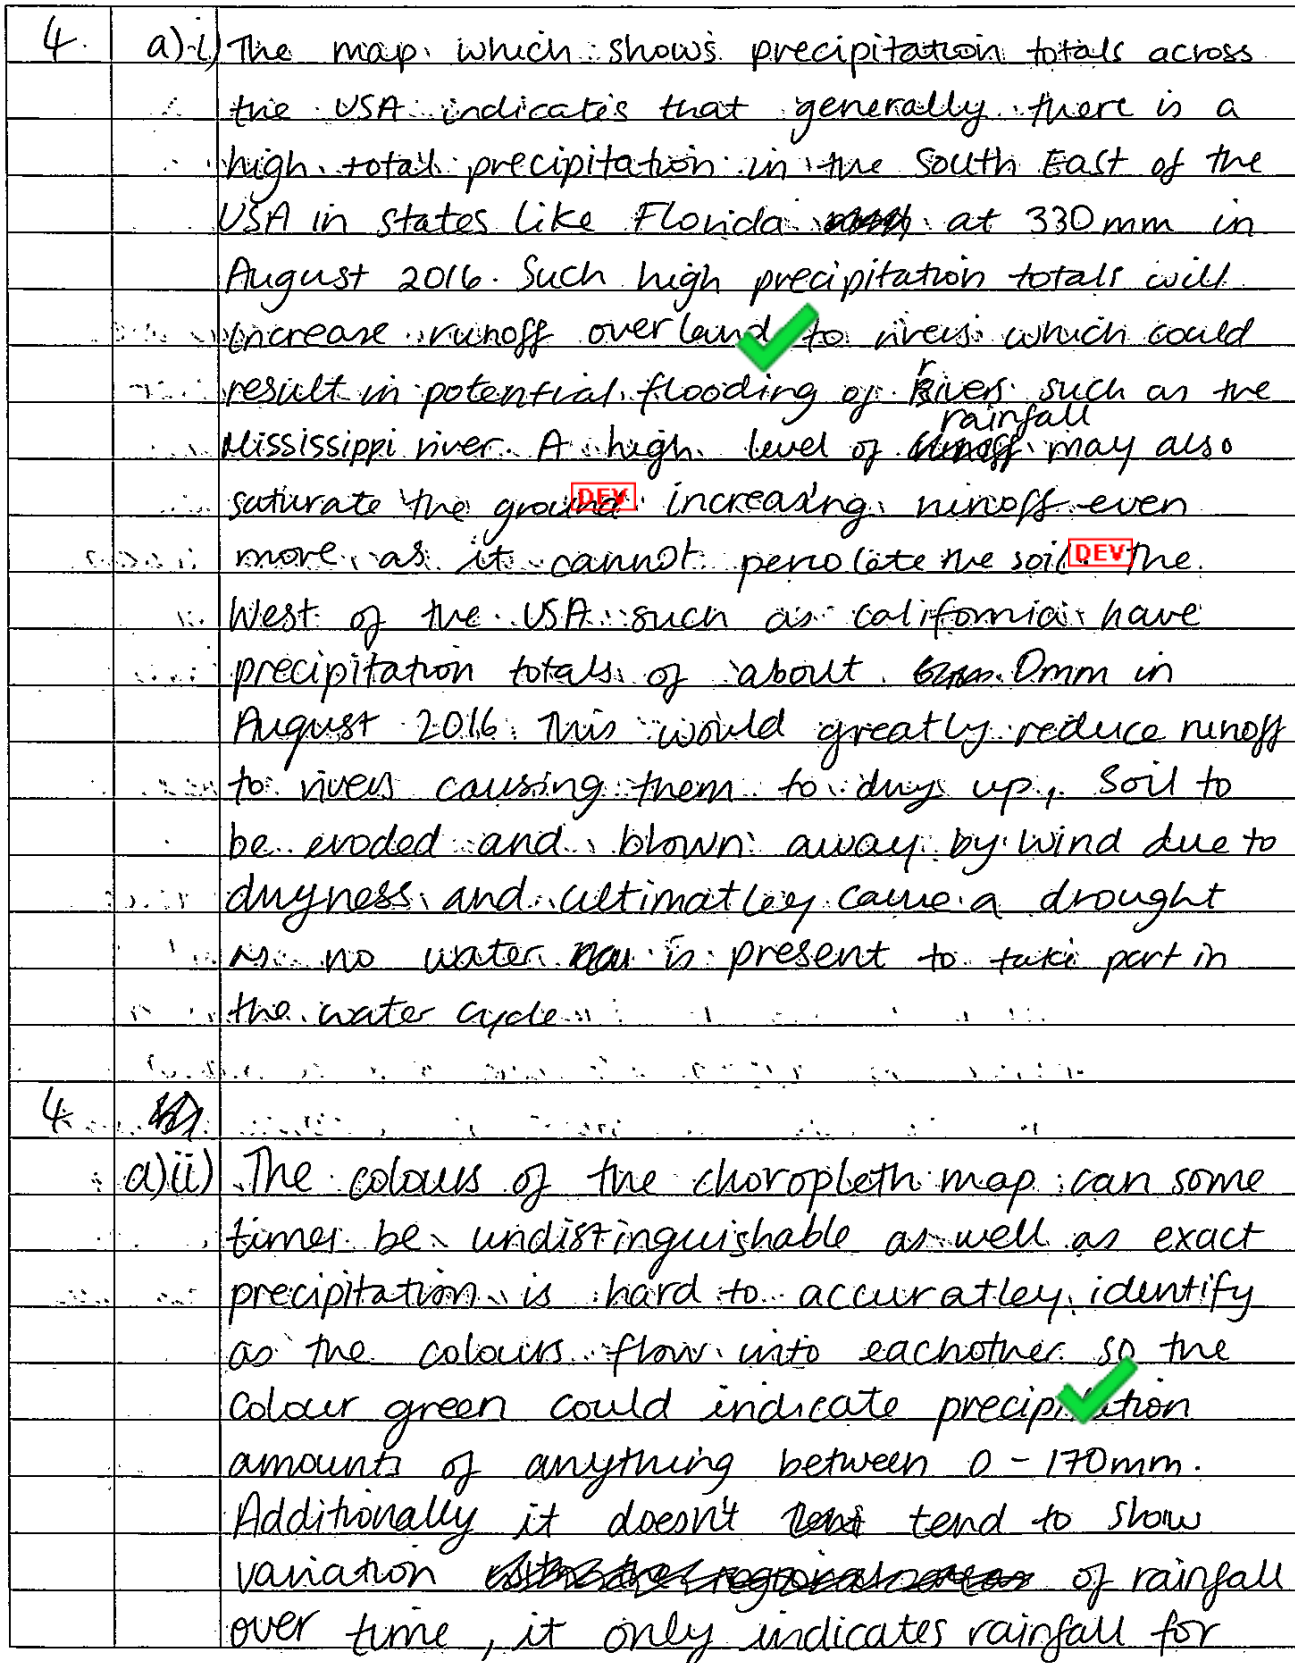 4. a)i) The map which shows precipitation totals across
the USA indicates that generally there is a
high total precipitation in the South East of the
USA in states like Florida at 330mm in
August 2016. Such high precipitation totals will
increase runoff overland to rivers which could
result in potential flooding of rivers such as the
Mississippi river. A high level of rainfall may also
saturate the ground DEV increasing runoff even
more as it cannot percolate the soil. DEV The
West of the USA such as California have
precipitation totals of about 0mm in
August 2016. This would greatly reduce runoff
to rivers causing them to drys up, soil to
be eroded and blown away by wind due to
dryness and ultimatley cause a drought
as no water is present to take part in
the water cycle
4
a)ii) The colours of the choropleth map can some
times be undistinguishable as well as exact
precipitation is hard to accuratley identify
as the colours flow into eachother so the
colour green could indicate precipitation
amounts of anything between 0-170mm.
Additionally it doesn't tend to show
variation of rainfall
over time, it only indicates rainfall for